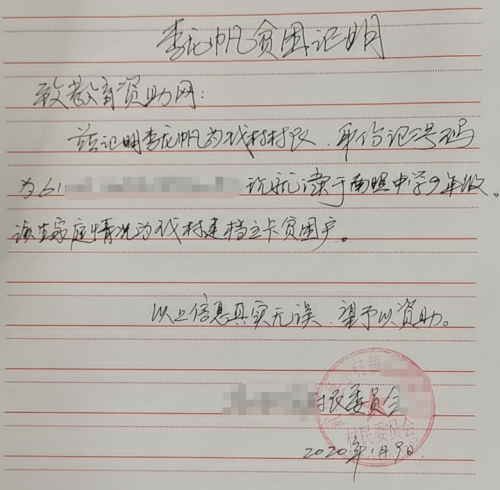 李龙帆贫困证明
致教育资助网:
兹证明李龙帆为我村村民,身份证号码
为61 现就读于南照中学9年级。
该生家庭情况为我村建档立卡贫困户。
以上信息真实无误,望予以资助。
村民委员会
村民委员会
2020年1月9日